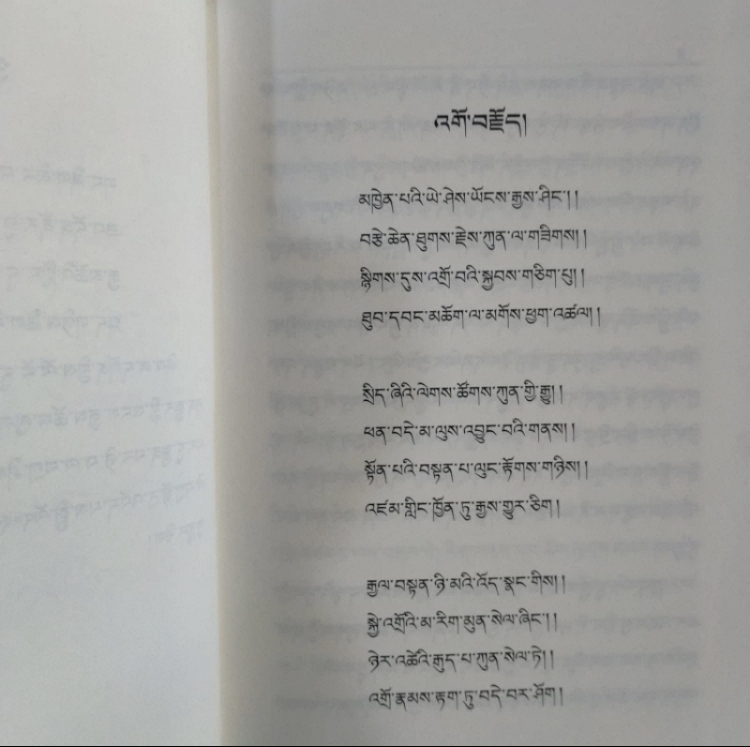 འགོ་བརྗོད།
མཁྱེན་པའི་ཡེ་ཤེས་ཡོངས་རྒྱས་ཤིང་། །
བརྩེ་ཆེན་ཐུགས་རྗེས་ཀུན་ལ་གཟིགས། །
སྙིགས་དུས་འགྲོ་བའི་སྐྱབས་གཅིག་པུ། །
ཐུབ་དབང་མཆོག་ལ་མགོས་ཕྱག་འཚལ། །
སྲིད་ཞིའི་ལེགས་ཚོགས་ཀུན་གྱི་རྒྱུ། །
ཕན་བདེ་མ་ལུས་འབྱུང་བའི་གནས། །
སྟོན་པའི་བསྟན་པ་ལུང་རྟོགས་གཉིས། །
འཛམ་གླིང་ཁྱོན་ཏུ་རྒྱས་གྱུར་ཅིག །
རྒྱལ་བསྟན་ཉི་མའི་འོད་སྣང་གིས། །
སྐྱེ་འགྲོའི་མ་རིག་མུན་སེལ་ཞིང་། །
ཉེར་འཚེའི་རྒུད་པ་ཀུན་སེལ་ཏེ། །
འགྲོ་རྣམས་རྟག་ཏུ་བདེ་བར་ཤོག །